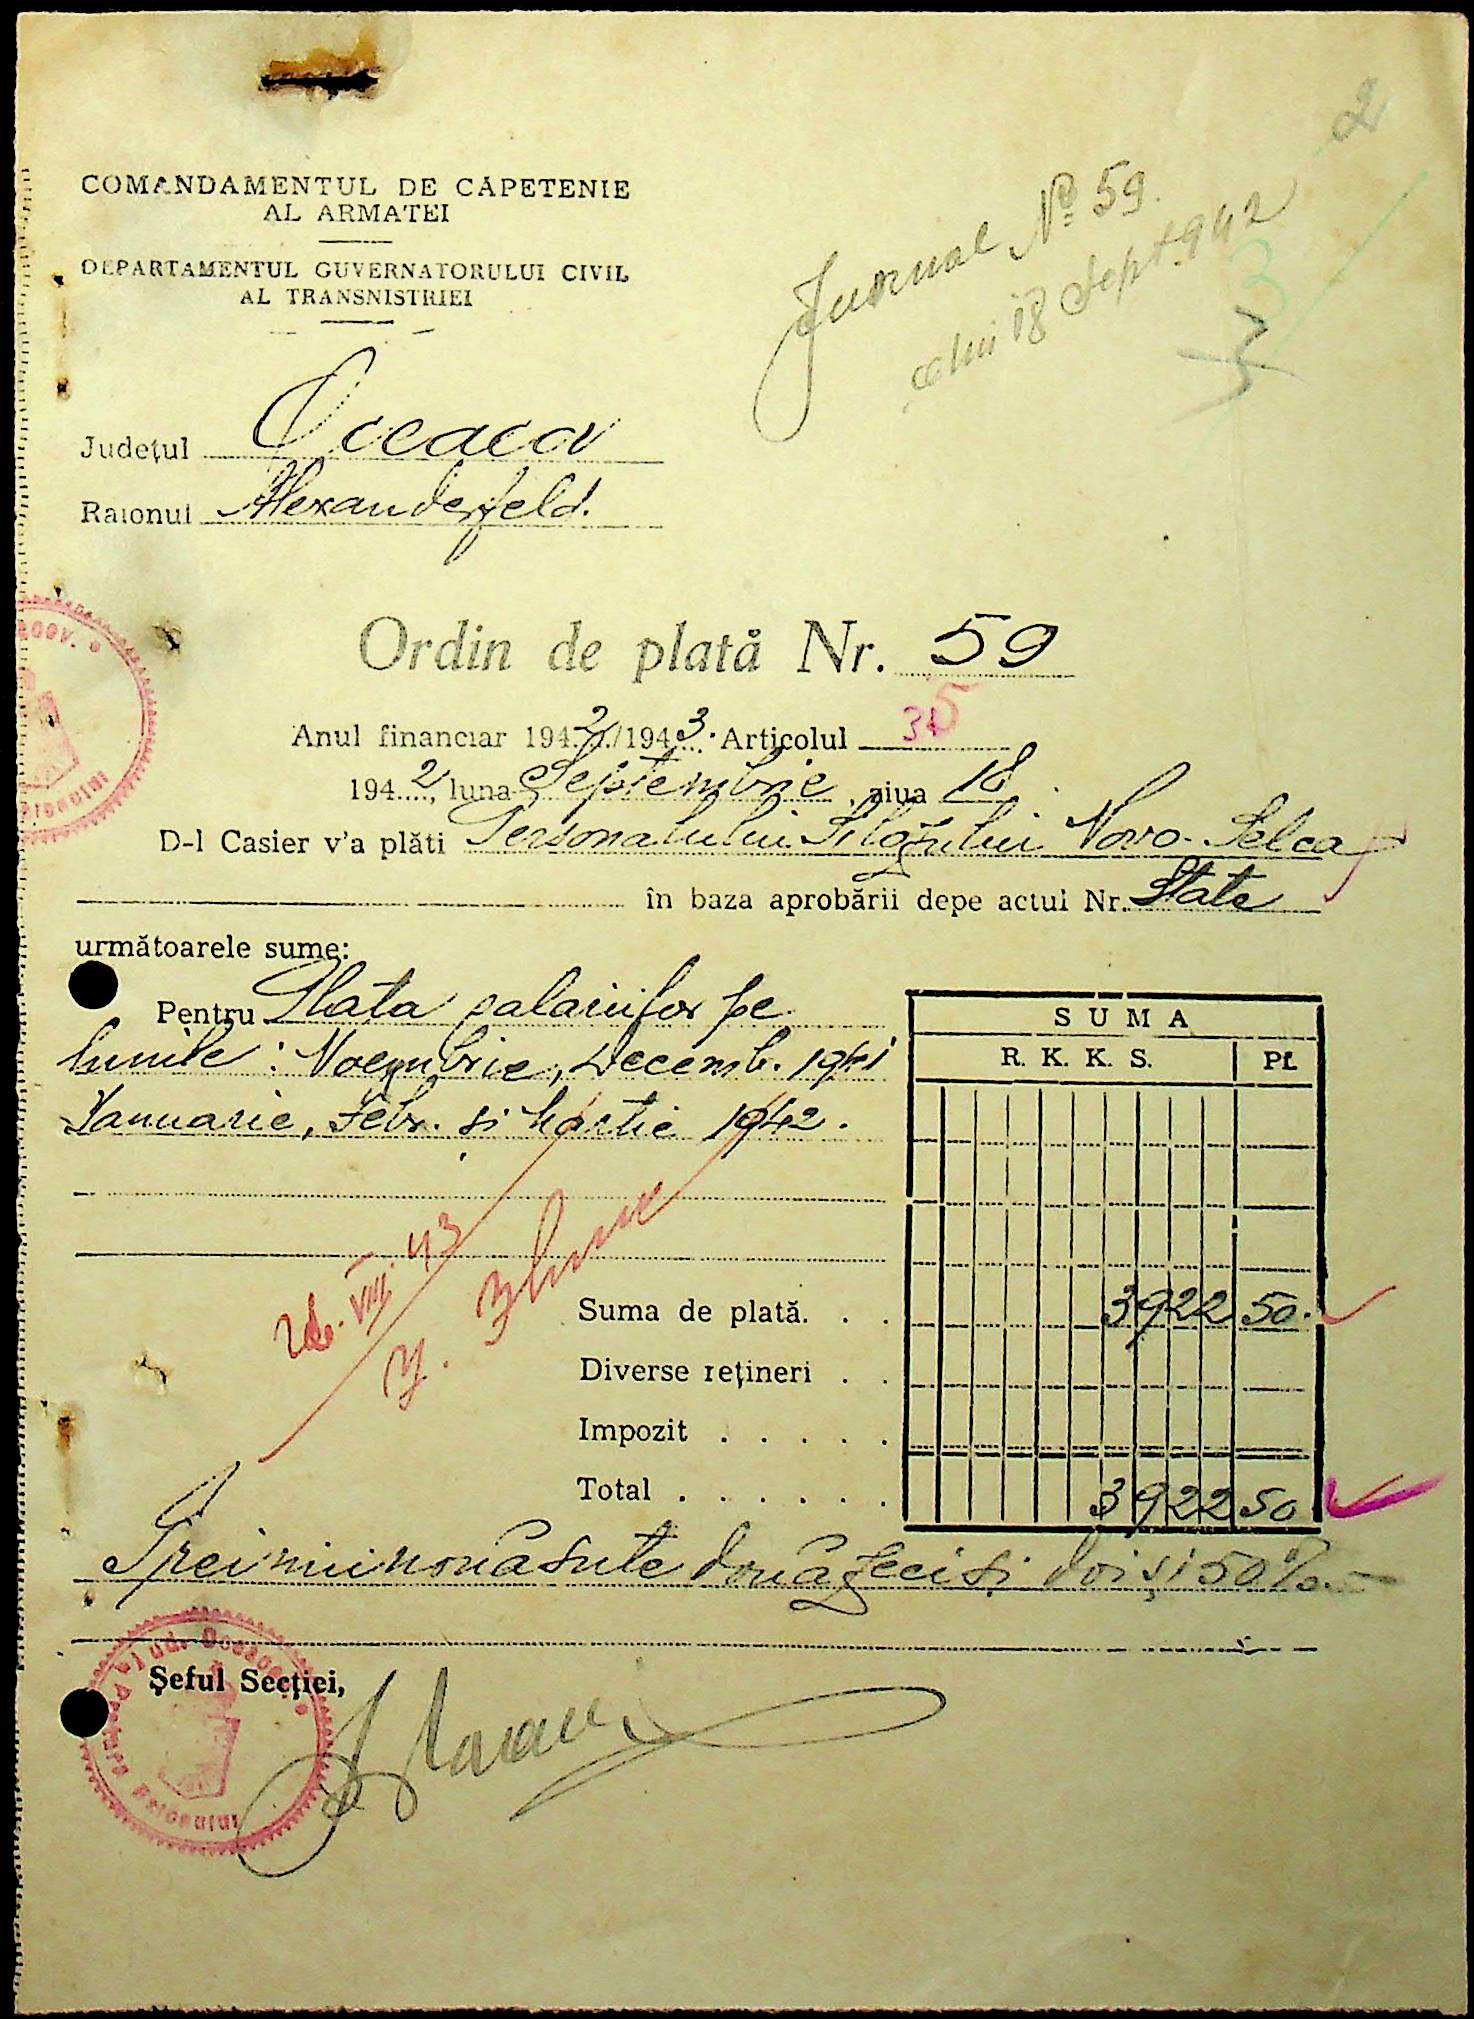 2
COMANDAMENTUL DE CAPETENIE
AL ARMATEI
DEPARTAMENTUL GUVERNATORULUI CIVIL
AL TRANSNISTRIEI
Jurnal No 59.
18 Sept. 942
3
Județul Oceacov
Raionul Alexanderfeld.
Ordin de plată Nr. 59
Anul financiar 1942/1943. Articolul 35
1942, luna Septembrie, ziua 18
D-l Casier v'a plăti Personalului Silozului Novo-Selca
în baza aprobării depe actul Nr. State
următoarele sume:
Pentru Plata salariilor pe
lunile: Noembrie, Decemb. 1941
Ianuarie, Febr. si Martie 1942.
SUMA
R. K. K. S. Pf.
VIII. 43
Suma de plată. . . 3922 50.
Diverse rețineri . .
Impozit . . . . .
Total . . . . . . 3922 50
Trei mii nouă sute două zeci si doi și 50%.-
Șeful Secției,
Jud. Oceacov
Pretura Raionului